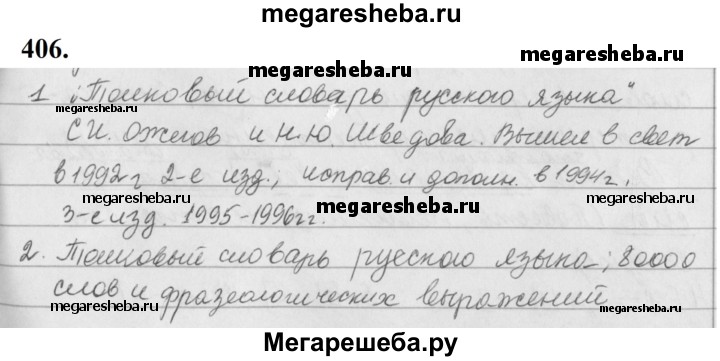 megaresheba.ru
406.
megaresheba.ru
1. „Толковый словарь русского языка"
megaresheba.ru
megaresheba.ru
С.И. Ожегов и Н.Ю. Шведова. Вышел в свет
в 1992 г 2-е изд.; исправ. и дополн. в 1994 г.
megaresheba.ru
3-е изд. 1995-1996 гг.
2. Толковый словарь русского языка; 80000
слов и фразеологических выражений
megaresheba.ru
megaresheba.ru
Мегарешеба.ру